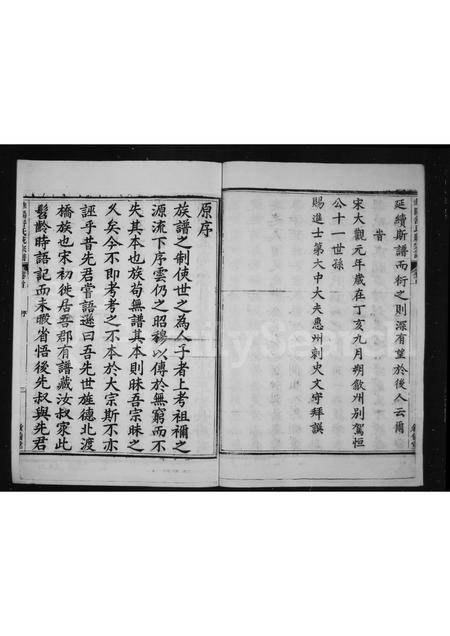 延續斯譜而衍之則深有望於後人云爾
旹
宋大觀元年歲在丁亥九月朔歙州別駕恒
公十一世孫
賜進士第大中大夫惠州刺史文守拜譔
原序
族譜之制使世之為人子者上考祖禰之
源流下序雲仍之昭穆以傳於無窮而不
失其本也族苟無譜其本則昧吾宗昧之
久矣今不即考考之不本於大宗斯不亦
誣乎昔先君嘗語遜曰吾先世旌德北渡
橋族也宋初徙居吾郡有譜藏汝叔家此
髫齡時語記而未暇省悟後先叔與先君